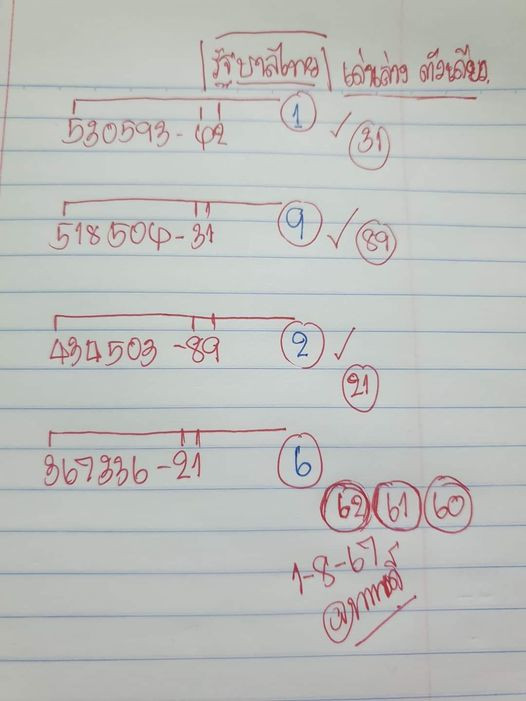 รัฐบาลไทย เด่นล่าง ตัวเดียว
530593-42 1 ✓ 31
518504-31 9 ✓ 89
434503-89 2 ✓
21
367336-21 6
62 61 60
1-8-67